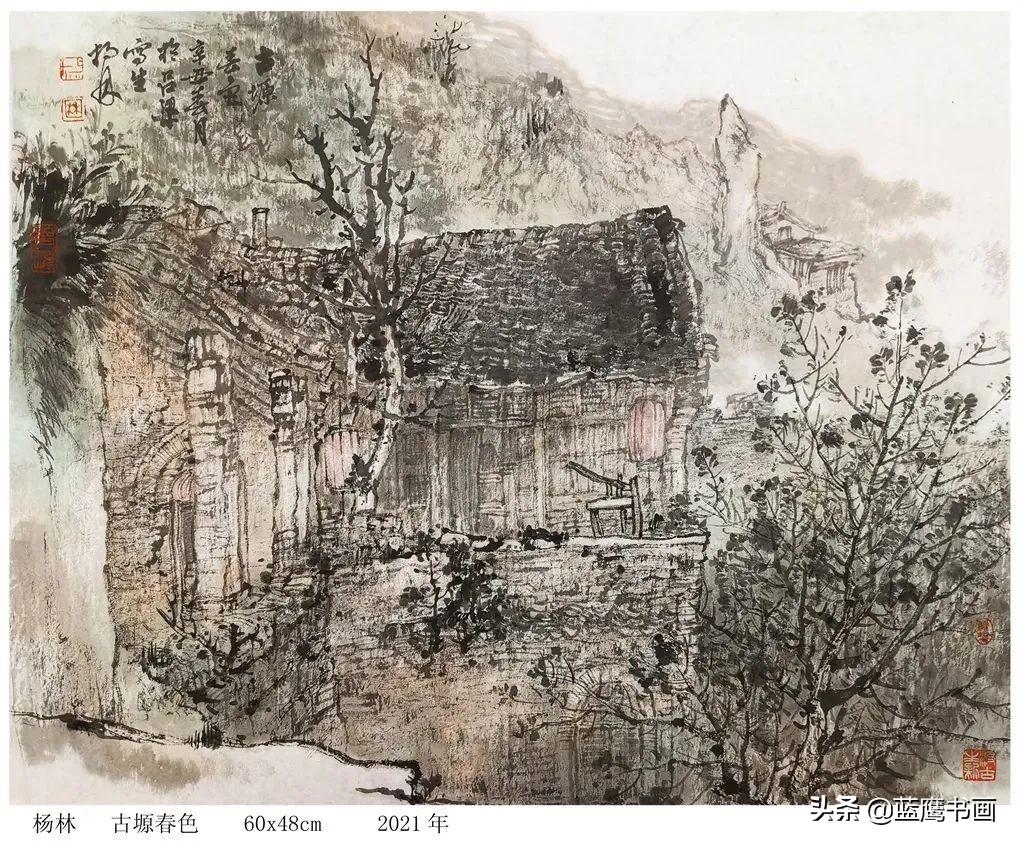 古塬
春色
辛丑月
於吕梁
写生
杨林
杨林 古塬春色 60x48cm 2021年
头条 @蓝鹰书画